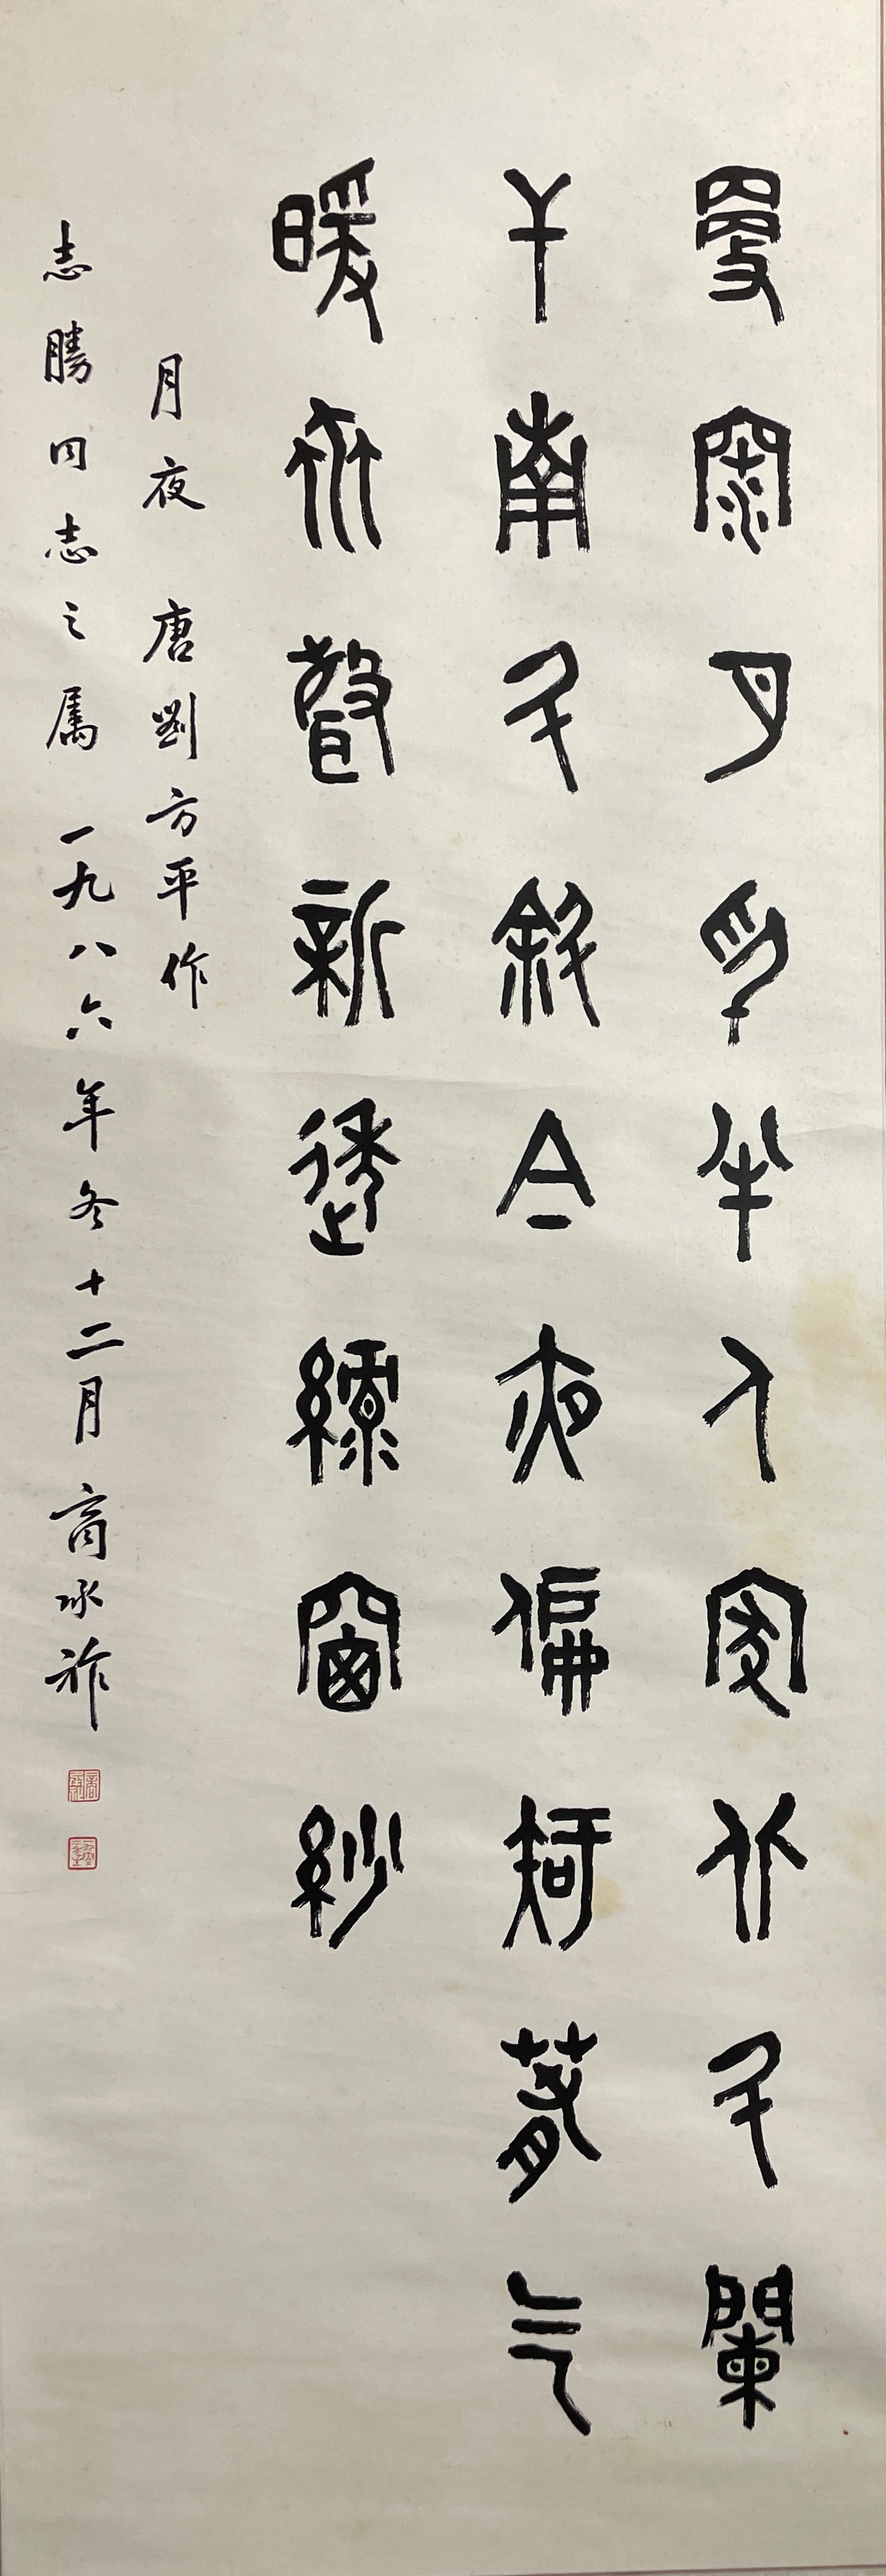 更深月色半人家北斗闌
干南斗斜今夜偏知萅气
暖虫聲新透綠窗紗
月夜 唐劉方平作
志勝同志之属 一九八六年冬十二月 商承祚